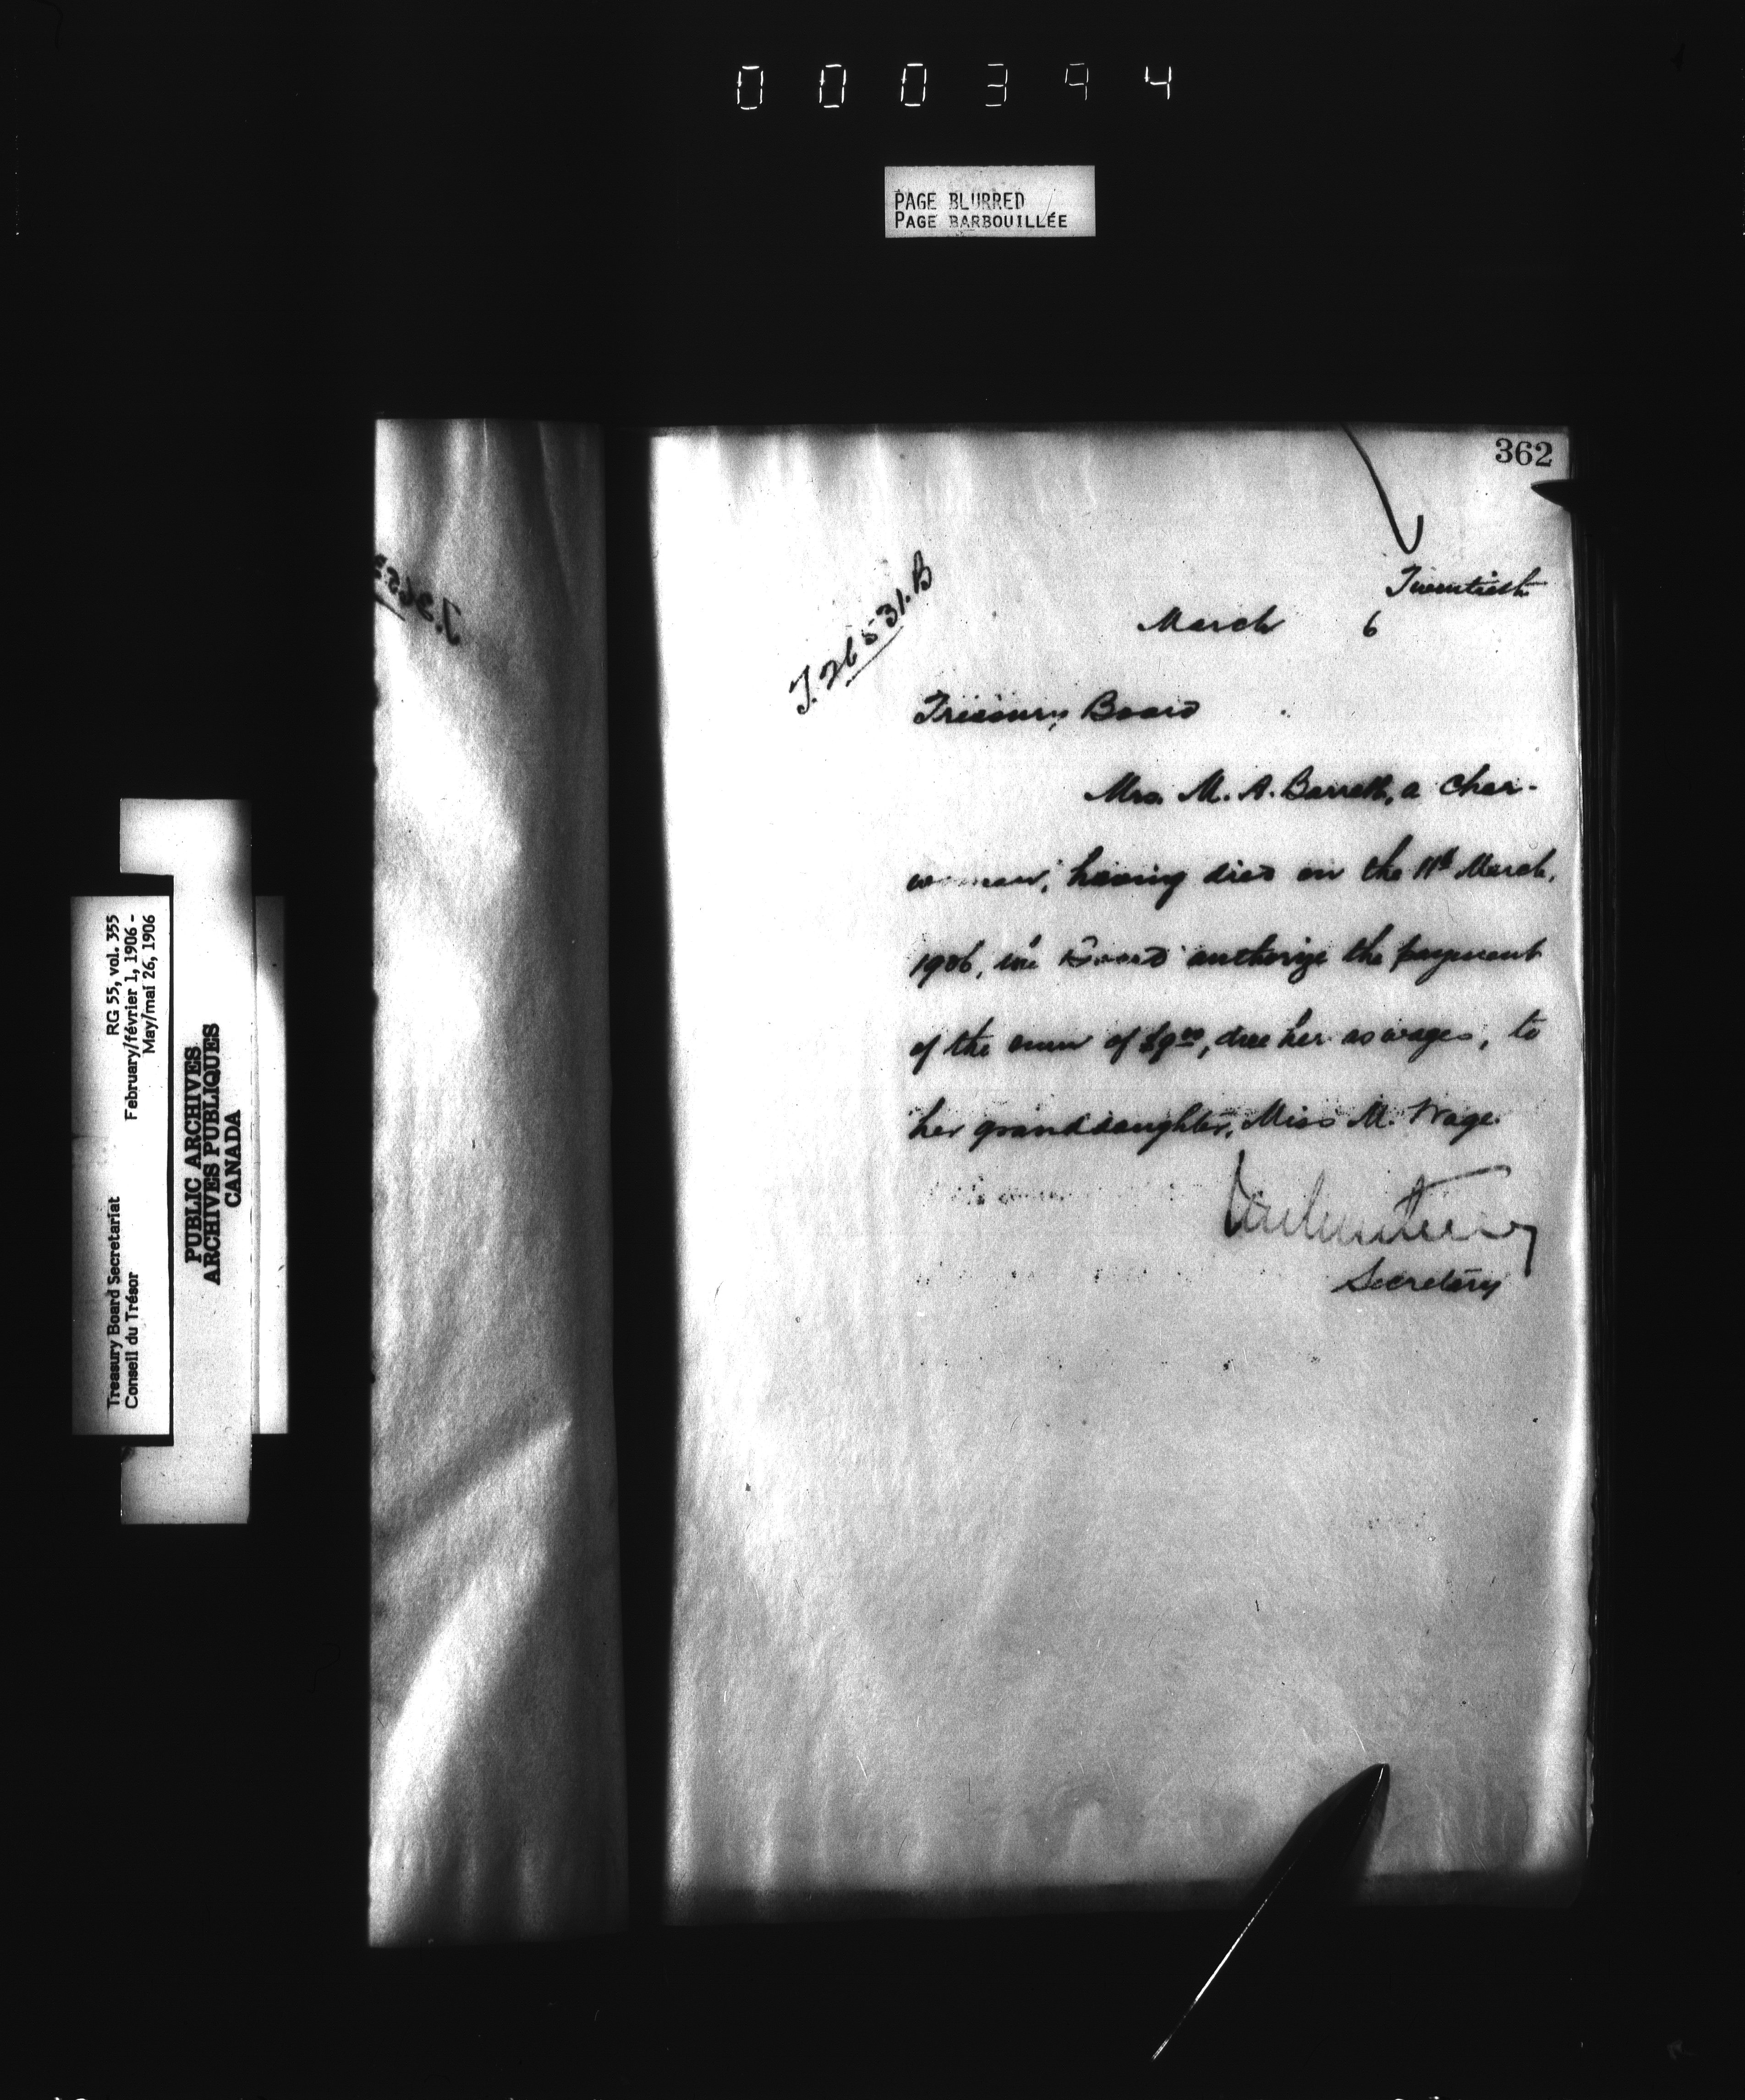 000394
PAGE BLURRED
PAGE BARBOUILLÉE
362
T. 26531.B
Twentieth
March 6
Treasury Board
Mrs. M. A. Barrett, a char-
woman, having died on the 11th March,
1906, the Board authorize the payment
of the sum of $9.00, due her as wages, to
her granddaughter, Miss M. Wage.
Secretary
RG 55, vol. 355
February/février 1, 1906 -
May/mai 26, 1906
Treasury Board Secretariat
Conseil du Trésor
PUBLIC ARCHIVES
ARCHIVES PUBLIQUES
CANADA